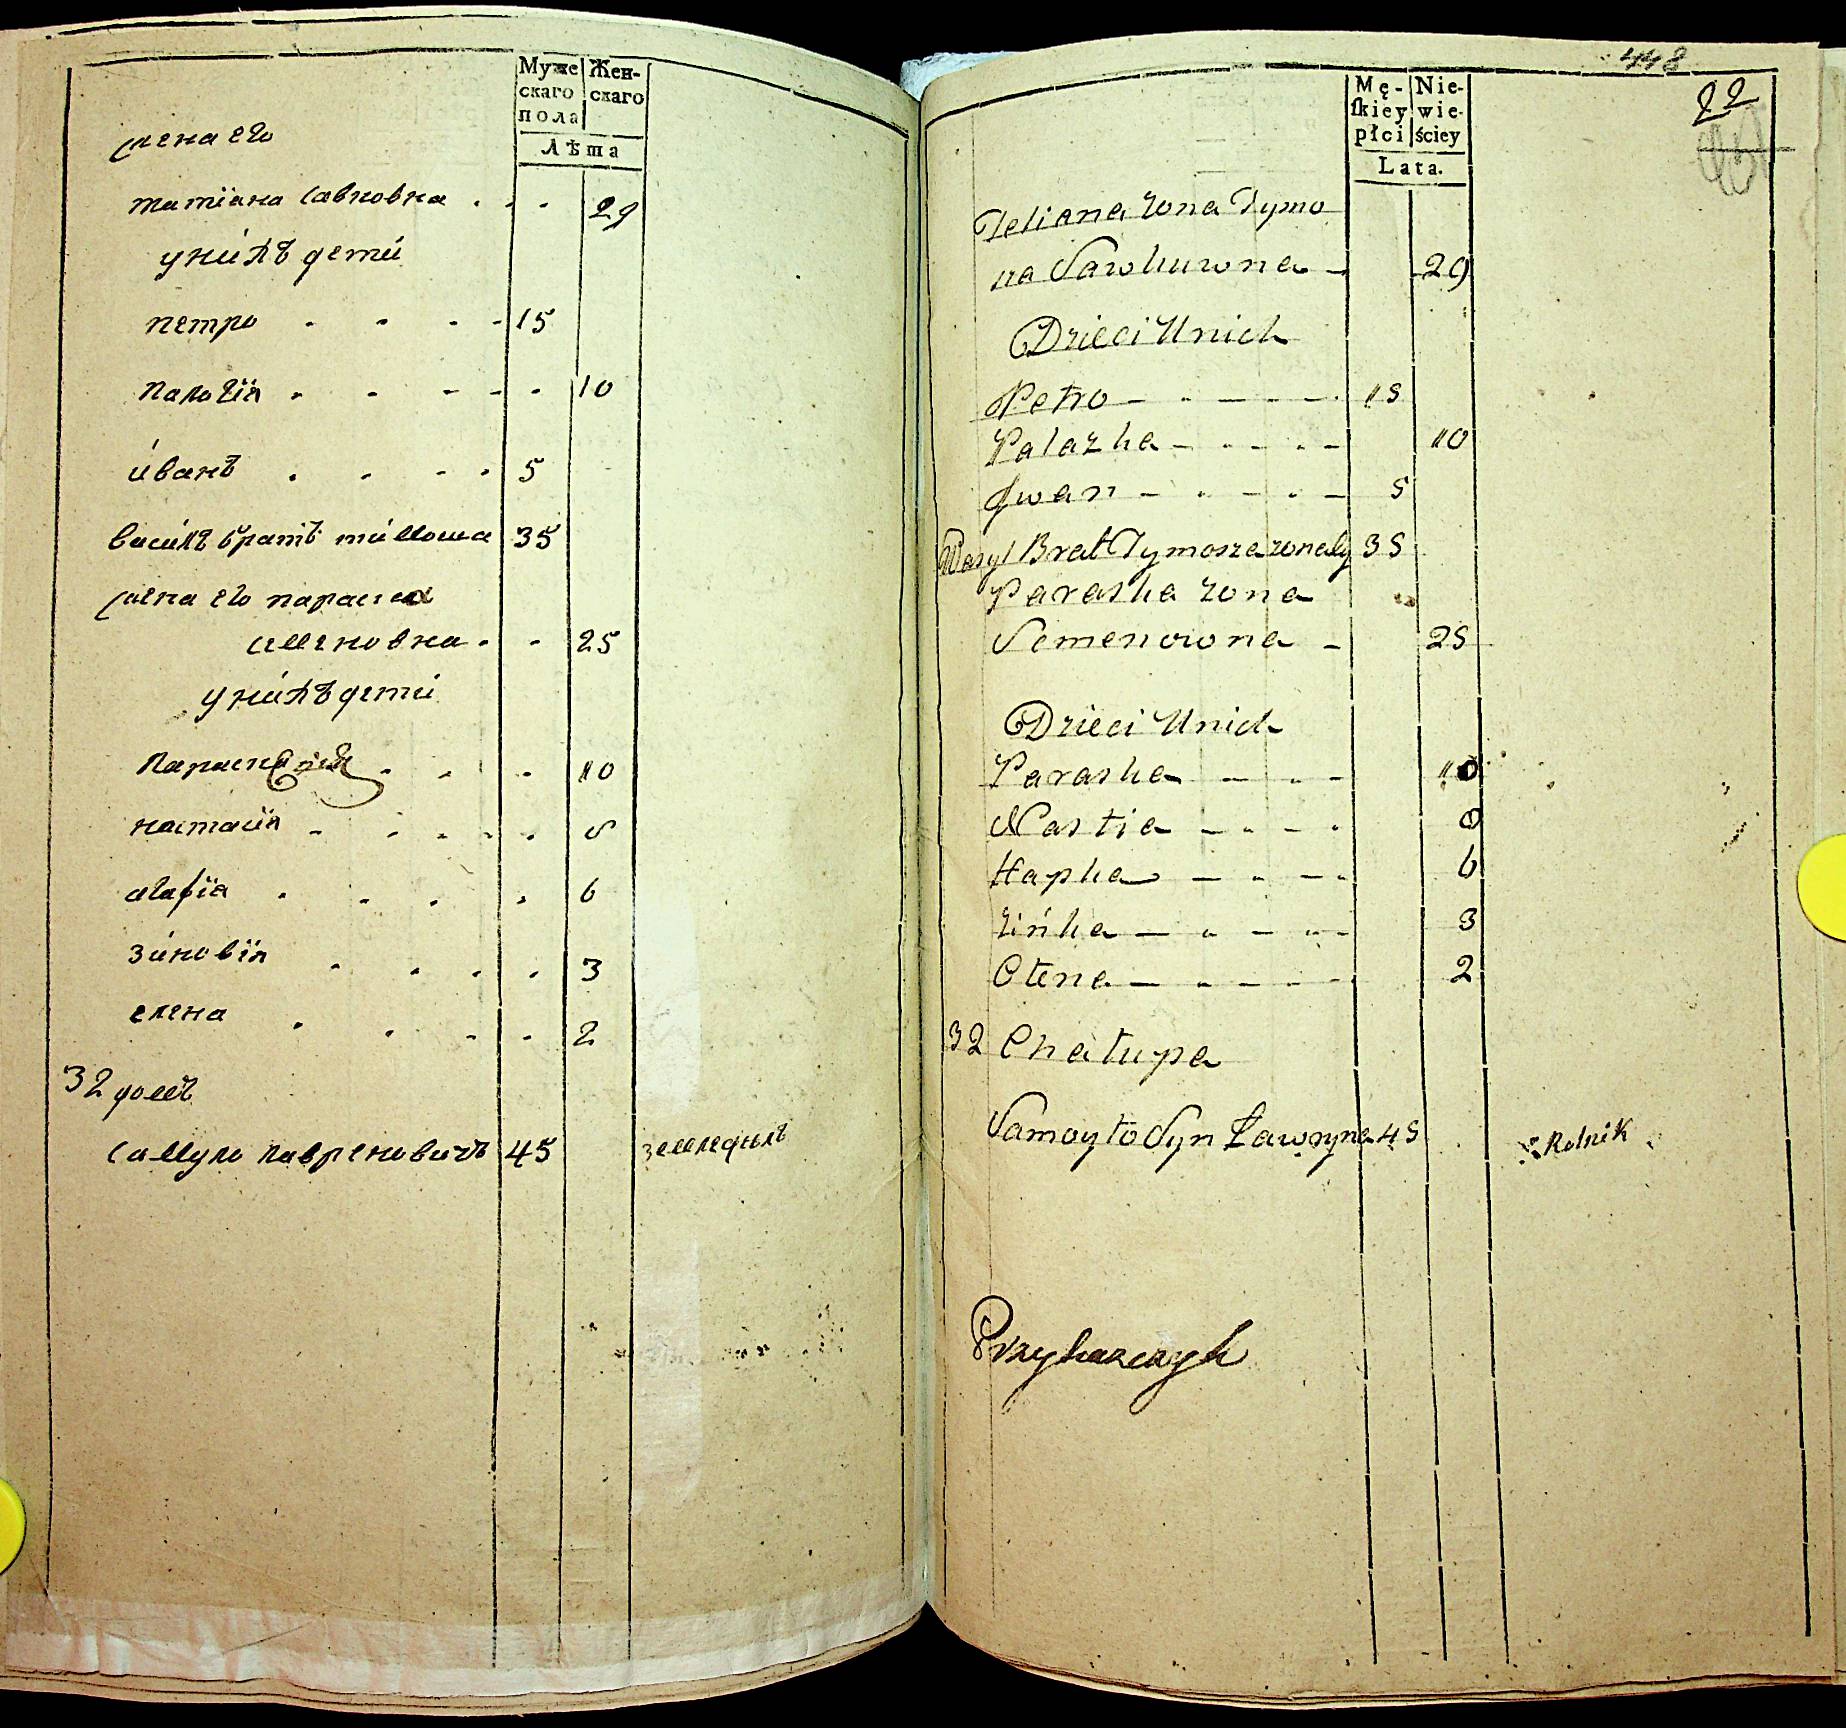 Муже
скаго
пола
Жен-
скаго
Лѣта
жена его
татіана савковна . . . 29
у нихъ дети
петро . . . . 15
палагія . . . . . 10
иванъ . . . . 5
василъ братъ тимоша 35
жена его параска
семеновна . . 25
у нихъ дети
параскавія . . . 10
настасія . . . . . 8
агафія . . . . 6
зиновія . . . . 3
елена . . . . 2
32 домъ
самуло лавреновичъ 45 земледелъ
448
22
Mę-
skiey
płci
Nie-
wie-
ściey
Lata.
Tetiana zona Tymo
na Sawkuwna — 29
Dzieci Unich
Petro — . — — . 15
Palazka — . . . — 10
Jwan — . — . — 5
Wasyl Brat Tymosza zonaty 35
Paraska zona
Semenowna — 25
Dzieci Unich
Paraska — . — 10
Nastia — . — . 8
Hapka — . — . 6
Zińka — . — . — 3
Olena — . — . — 2
32 Chałupa
Samoyło Syn Ławryna 45 Rolnik
Przykazczyk